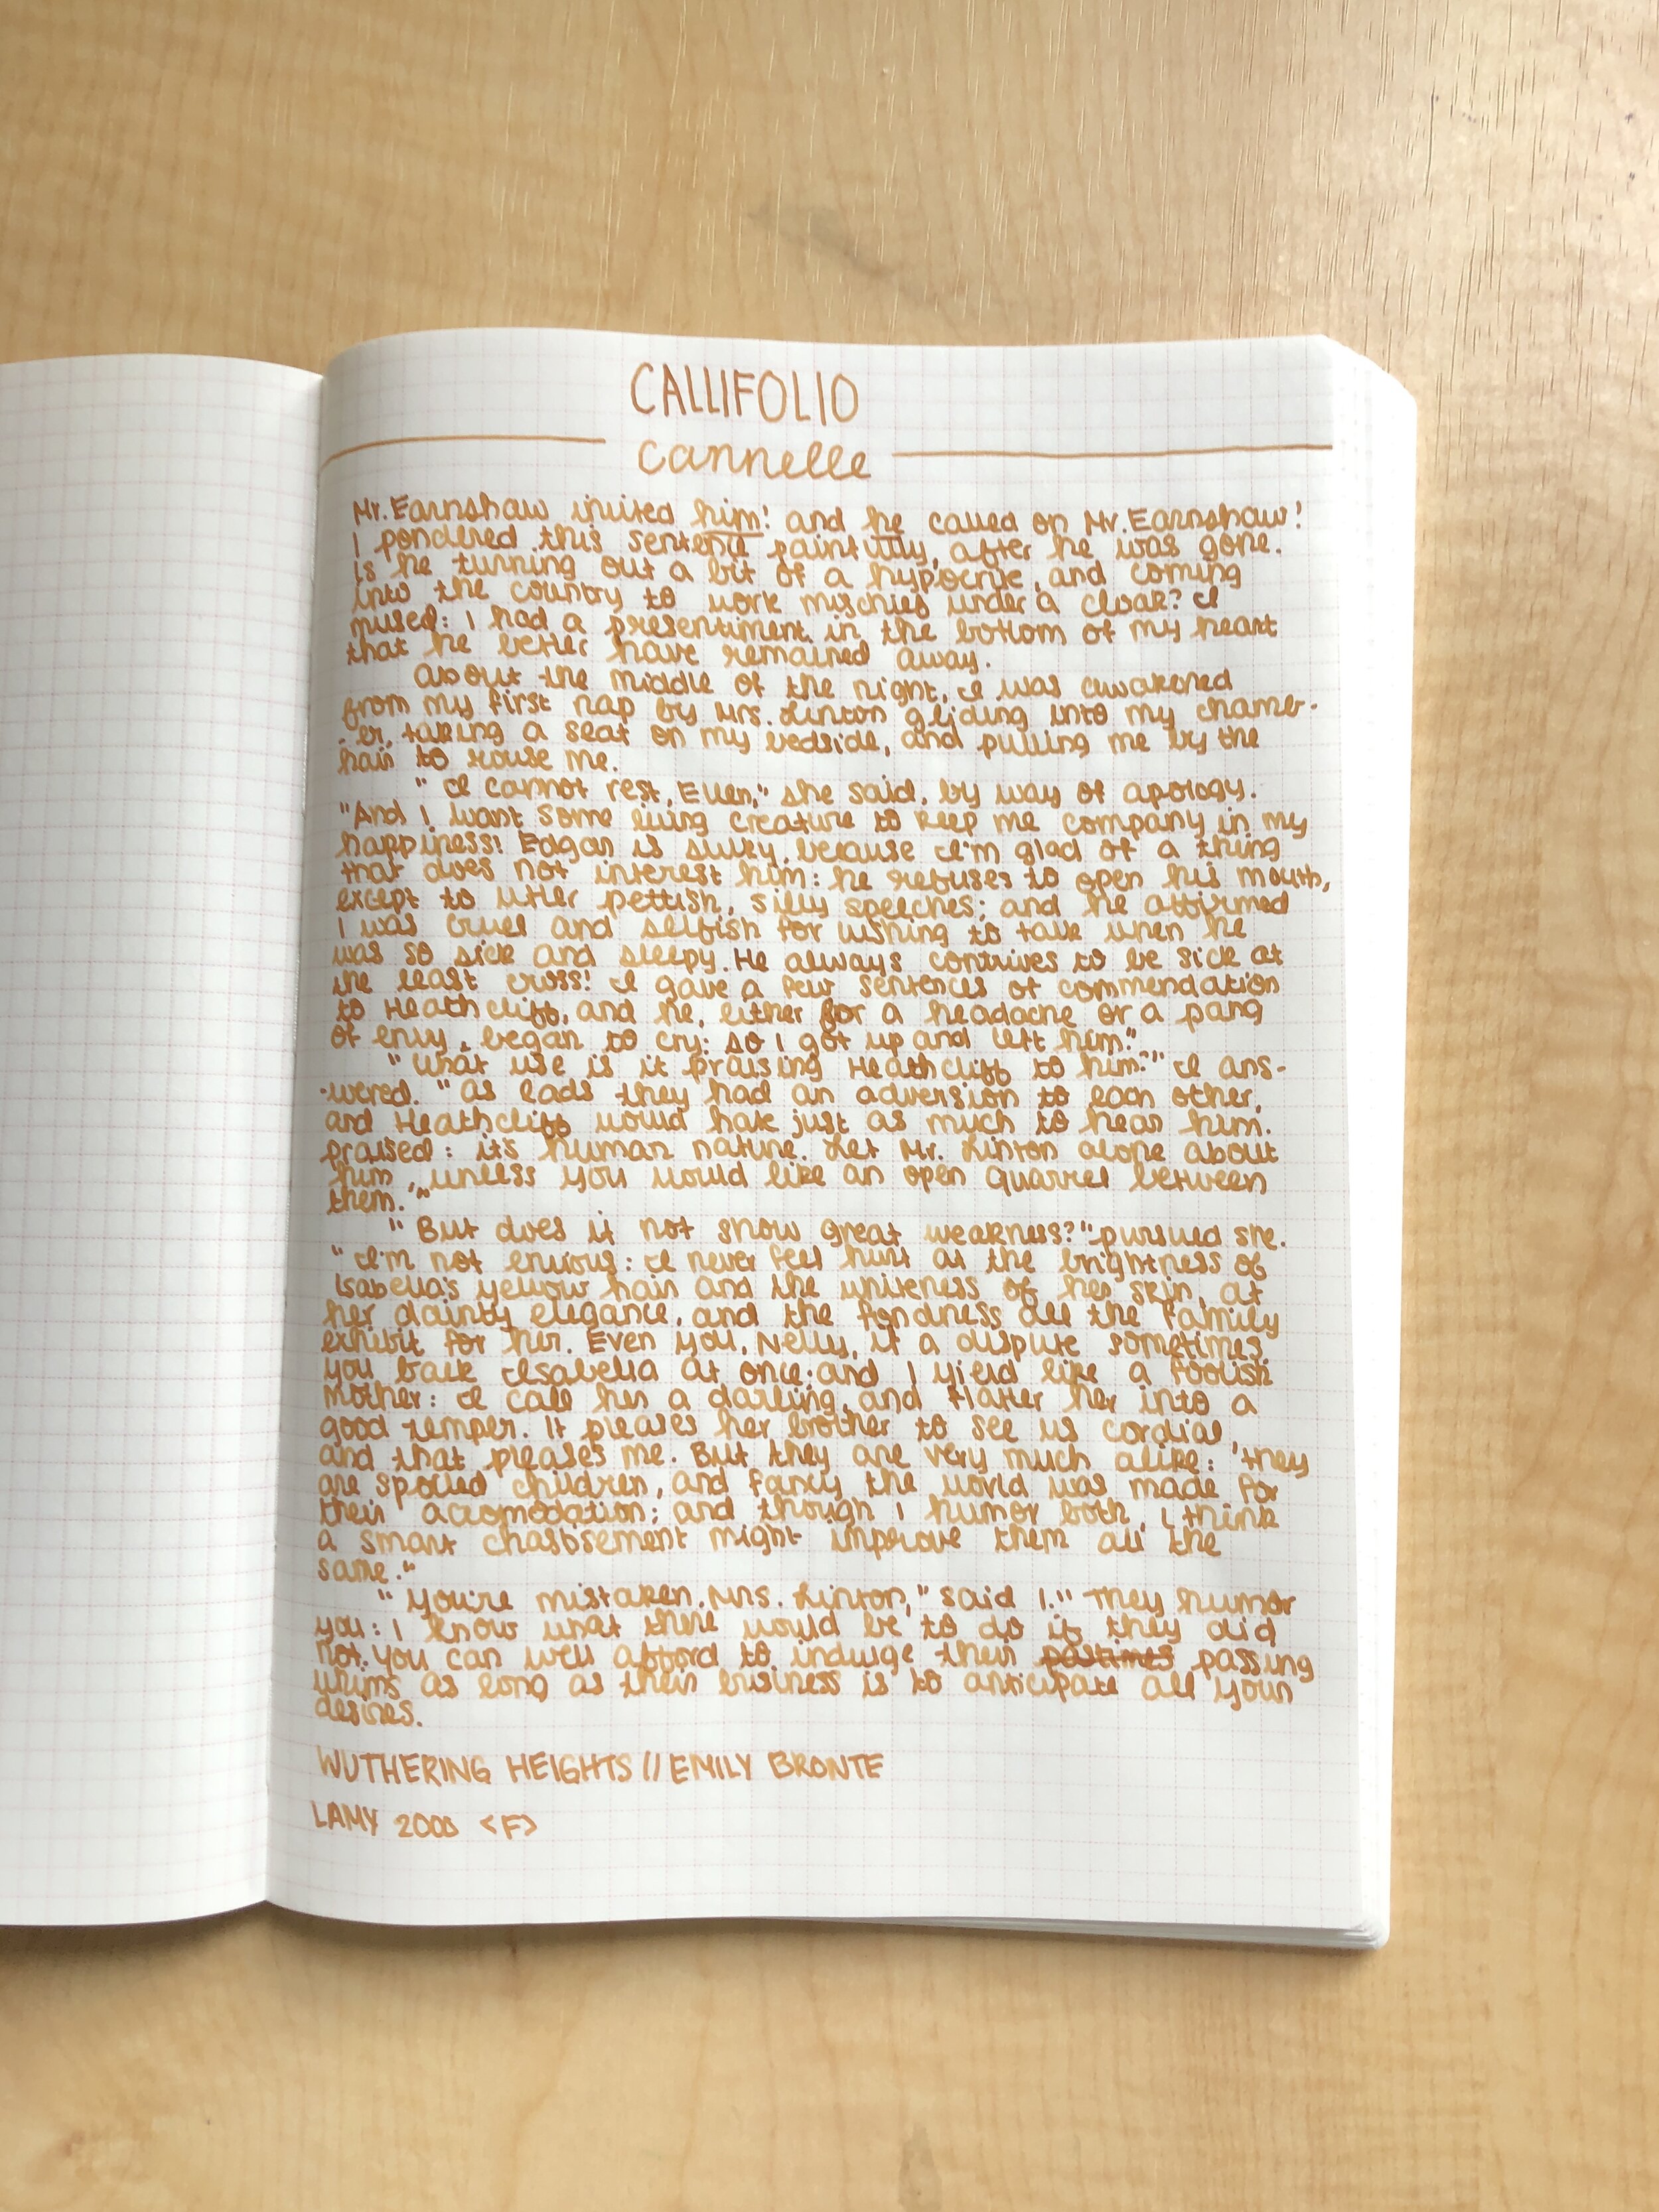 CALLIFOLIO
Cannelle
Mr. Earnshaw invited him! and he called on Mr. Earnshaw!
I pondered this sentence painfully, after he was gone.
Is he turning out a bit of a hypocrite, and coming
into the country to work mischief under a cloak? I
mused: I had a presentiment in the bottom of my heart
that he better have remained away.
About the middle of the night, I was awakened
from my first nap by Mrs. Linton gliding into my chamb-
-er, taking a seat on my bedside, and pulling me by the
hair to rouse me.
"I cannot rest, Ellen," she said, by way of apology.
"And I want some living creature to keep me company in my
happiness! Edgar is sulky, because I'm glad of a thing
that does not interest him: he refuses to open his mouth,
except to utter pettish, silly speeches; and he affirmed
I was cruel and selfish for wishing to talk when he
was so sick and sleepy. He always contrives to be sick at
the least cross! I gave a few sentences of commendation
to Heathcliff, and he, either for a headache or a pang
of envy, began to cry: so I got up and left him."
"What use is it praising Heathcliff to him?" I ans-
-wered. "As lads they had an adversion to each other,
and Heathcliff would hate just as much to hear him.
praised: it's human nature. Let Mr. Linton alone about
him, unless you would like an open quarrel between
them."
"But does it not show great weakness?" pursued she.
"I'm not envious: I never feel hurt at the brightness of
Isabella's yellow hair and the whiteness of her skin, at
her dainty elegance, and the fondness all the family
exhibit for her. Even you, Nelly, if a dispute sometimes,
you back Isabella at once; and I yield like a foolish
mother: I call her a darling, and flatter her into a
good temper. It pleases her brother to see us cordial,
and that pleases me. But they are very much alike: they
are spoiled children, and fancy the world was made for
their accomodation; and though I humor both, I think
a smart chastisement might improve them all the
same."
"You're mistaken, Mrs. Linton," said I. "They humor
you: I know what there would be to do if they did
not. You can well afford to indulge their pastimes passing
whims as long as their business is to anticipate all your
desires.
WUTHERING HEIGHTS // EMILY BRONTE
LAMY 2000 <F>